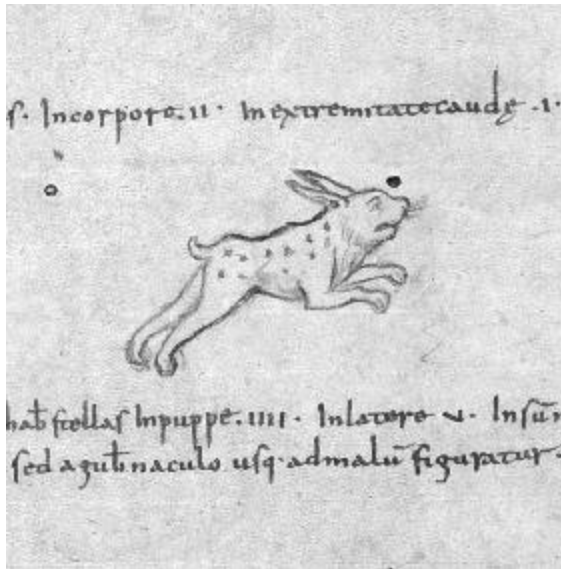 s. Incorpore. II. Inextremitatecaudę. I.
hab̄ stellas Inpuppe. IIII. Inlatere V. Insūm
sed agub̄naculo usq; admalū figuratur.